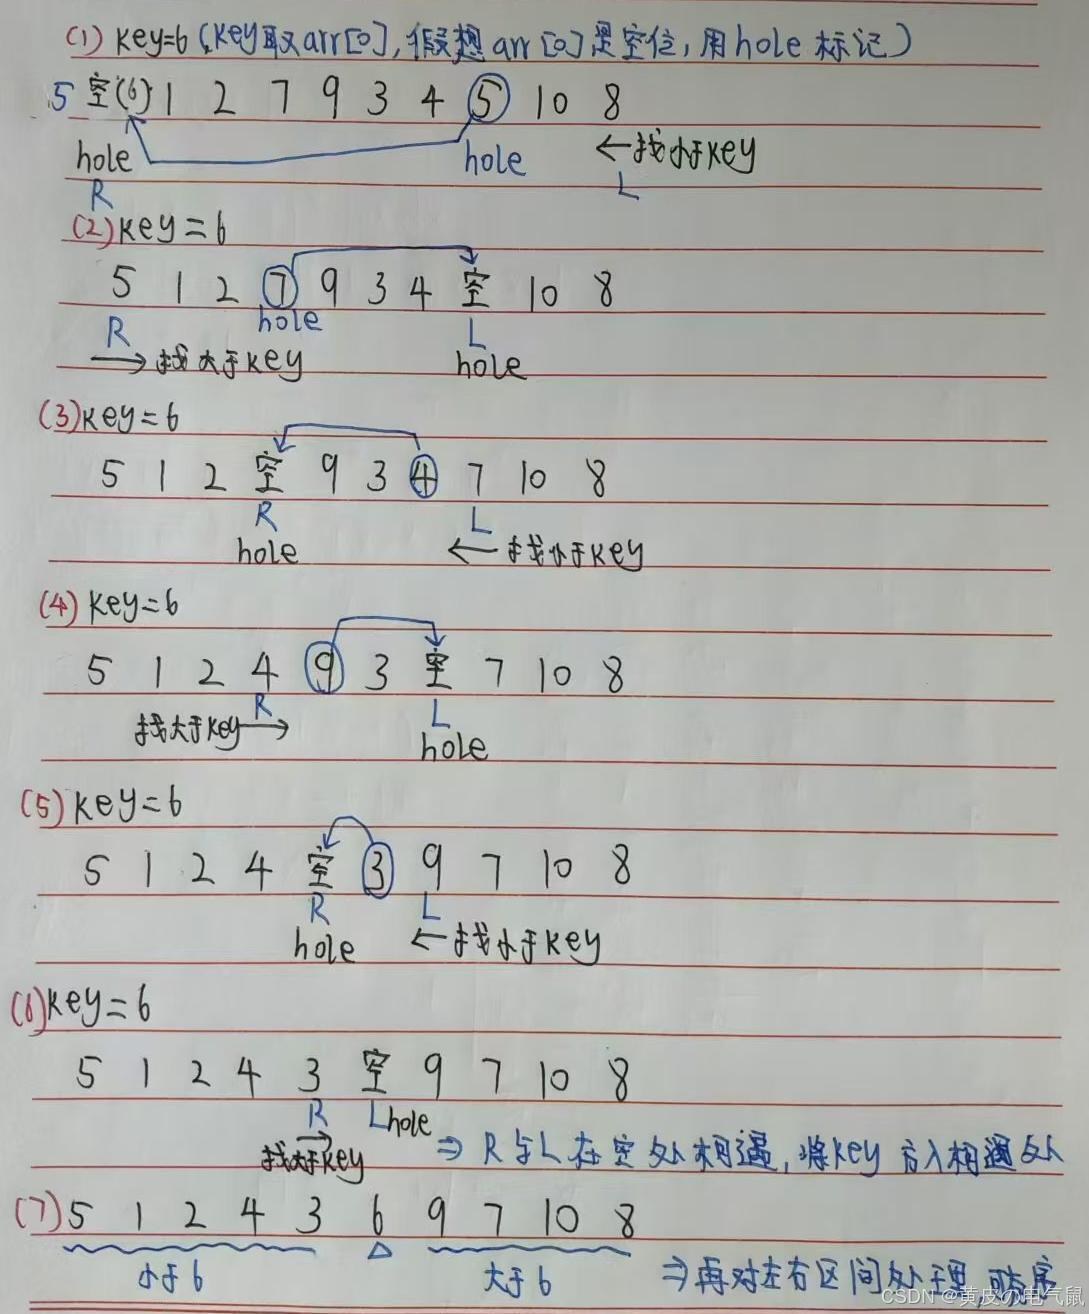 (1) key=6 (key取arr[0],假想arr[0]是空位,用hole标记)
5 空(6) 1 2 7 9 3 4 5 10 8
hole hole ←找小于key
R L
(2) key=6
5 1 2 7 9 3 4 空 10 8
R hole L
→找大于key hole
(3) key=6
5 1 2 空 9 3 4 7 10 8
R L
hole ←找小于key
(4) key=6
5 1 2 4 9 3 空 7 10 8
找大于key R→ L
hole
(5) key=6
5 1 2 4 空 3 9 7 10 8
R L
hole ←找小于key
(6) key=6
5 1 2 4 3 空 9 7 10 8
R L hole
→找大于key ⇒R与L在空处相遇,将key放入相遇处
(7) 5 1 2 4 3 6 9 7 10 8
小于6 △ 大于6 ⇒再对左右区间处理 序
CSDN @黄皮の电气鼠